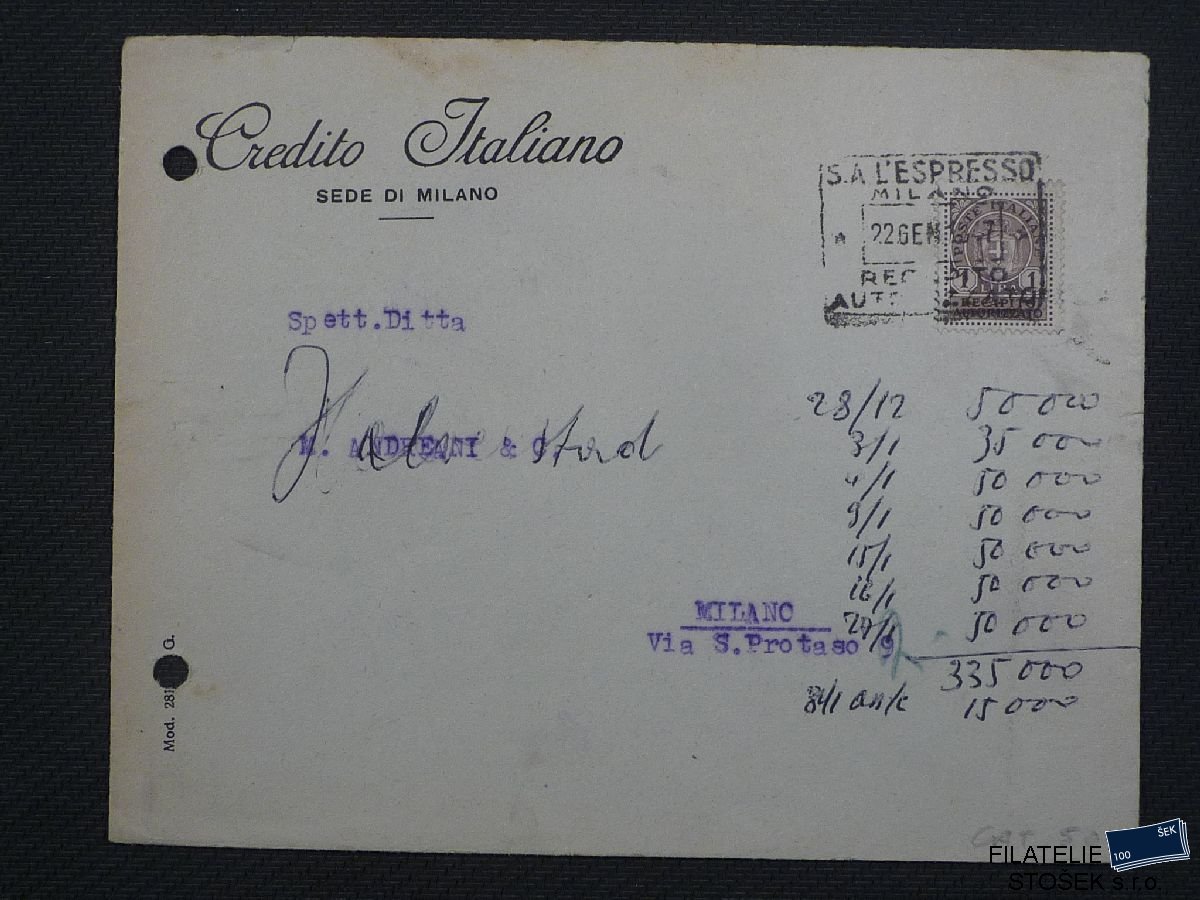 Credito Italiano
SEDE DI MILANO
S.A L'ESPRESSO
MILANO
22 GEN
RECAPITO
POSTE ITALIANE
1 LIRA 1
RECAPITO
AUTORIZZATO
Spett.Ditta
M. ANDREANI & C.
28/12 50 000
3/1 35 000
4/1 50 000
9/1 50 000
15/1 50 000
16/1 50 000
50 000
MILANO
Via S.Protaso 9
335 000
15 000
Mod. 281 G.
FILATELIE
STOŠEK s.r.o.
100 ŠEK